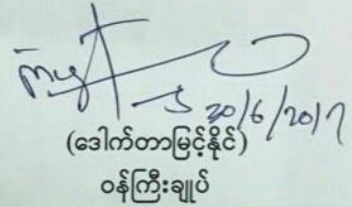 30/6/2017
(ဒေါက်တာမြင့်နိုင်)
ဝန်ကြီးချုပ်